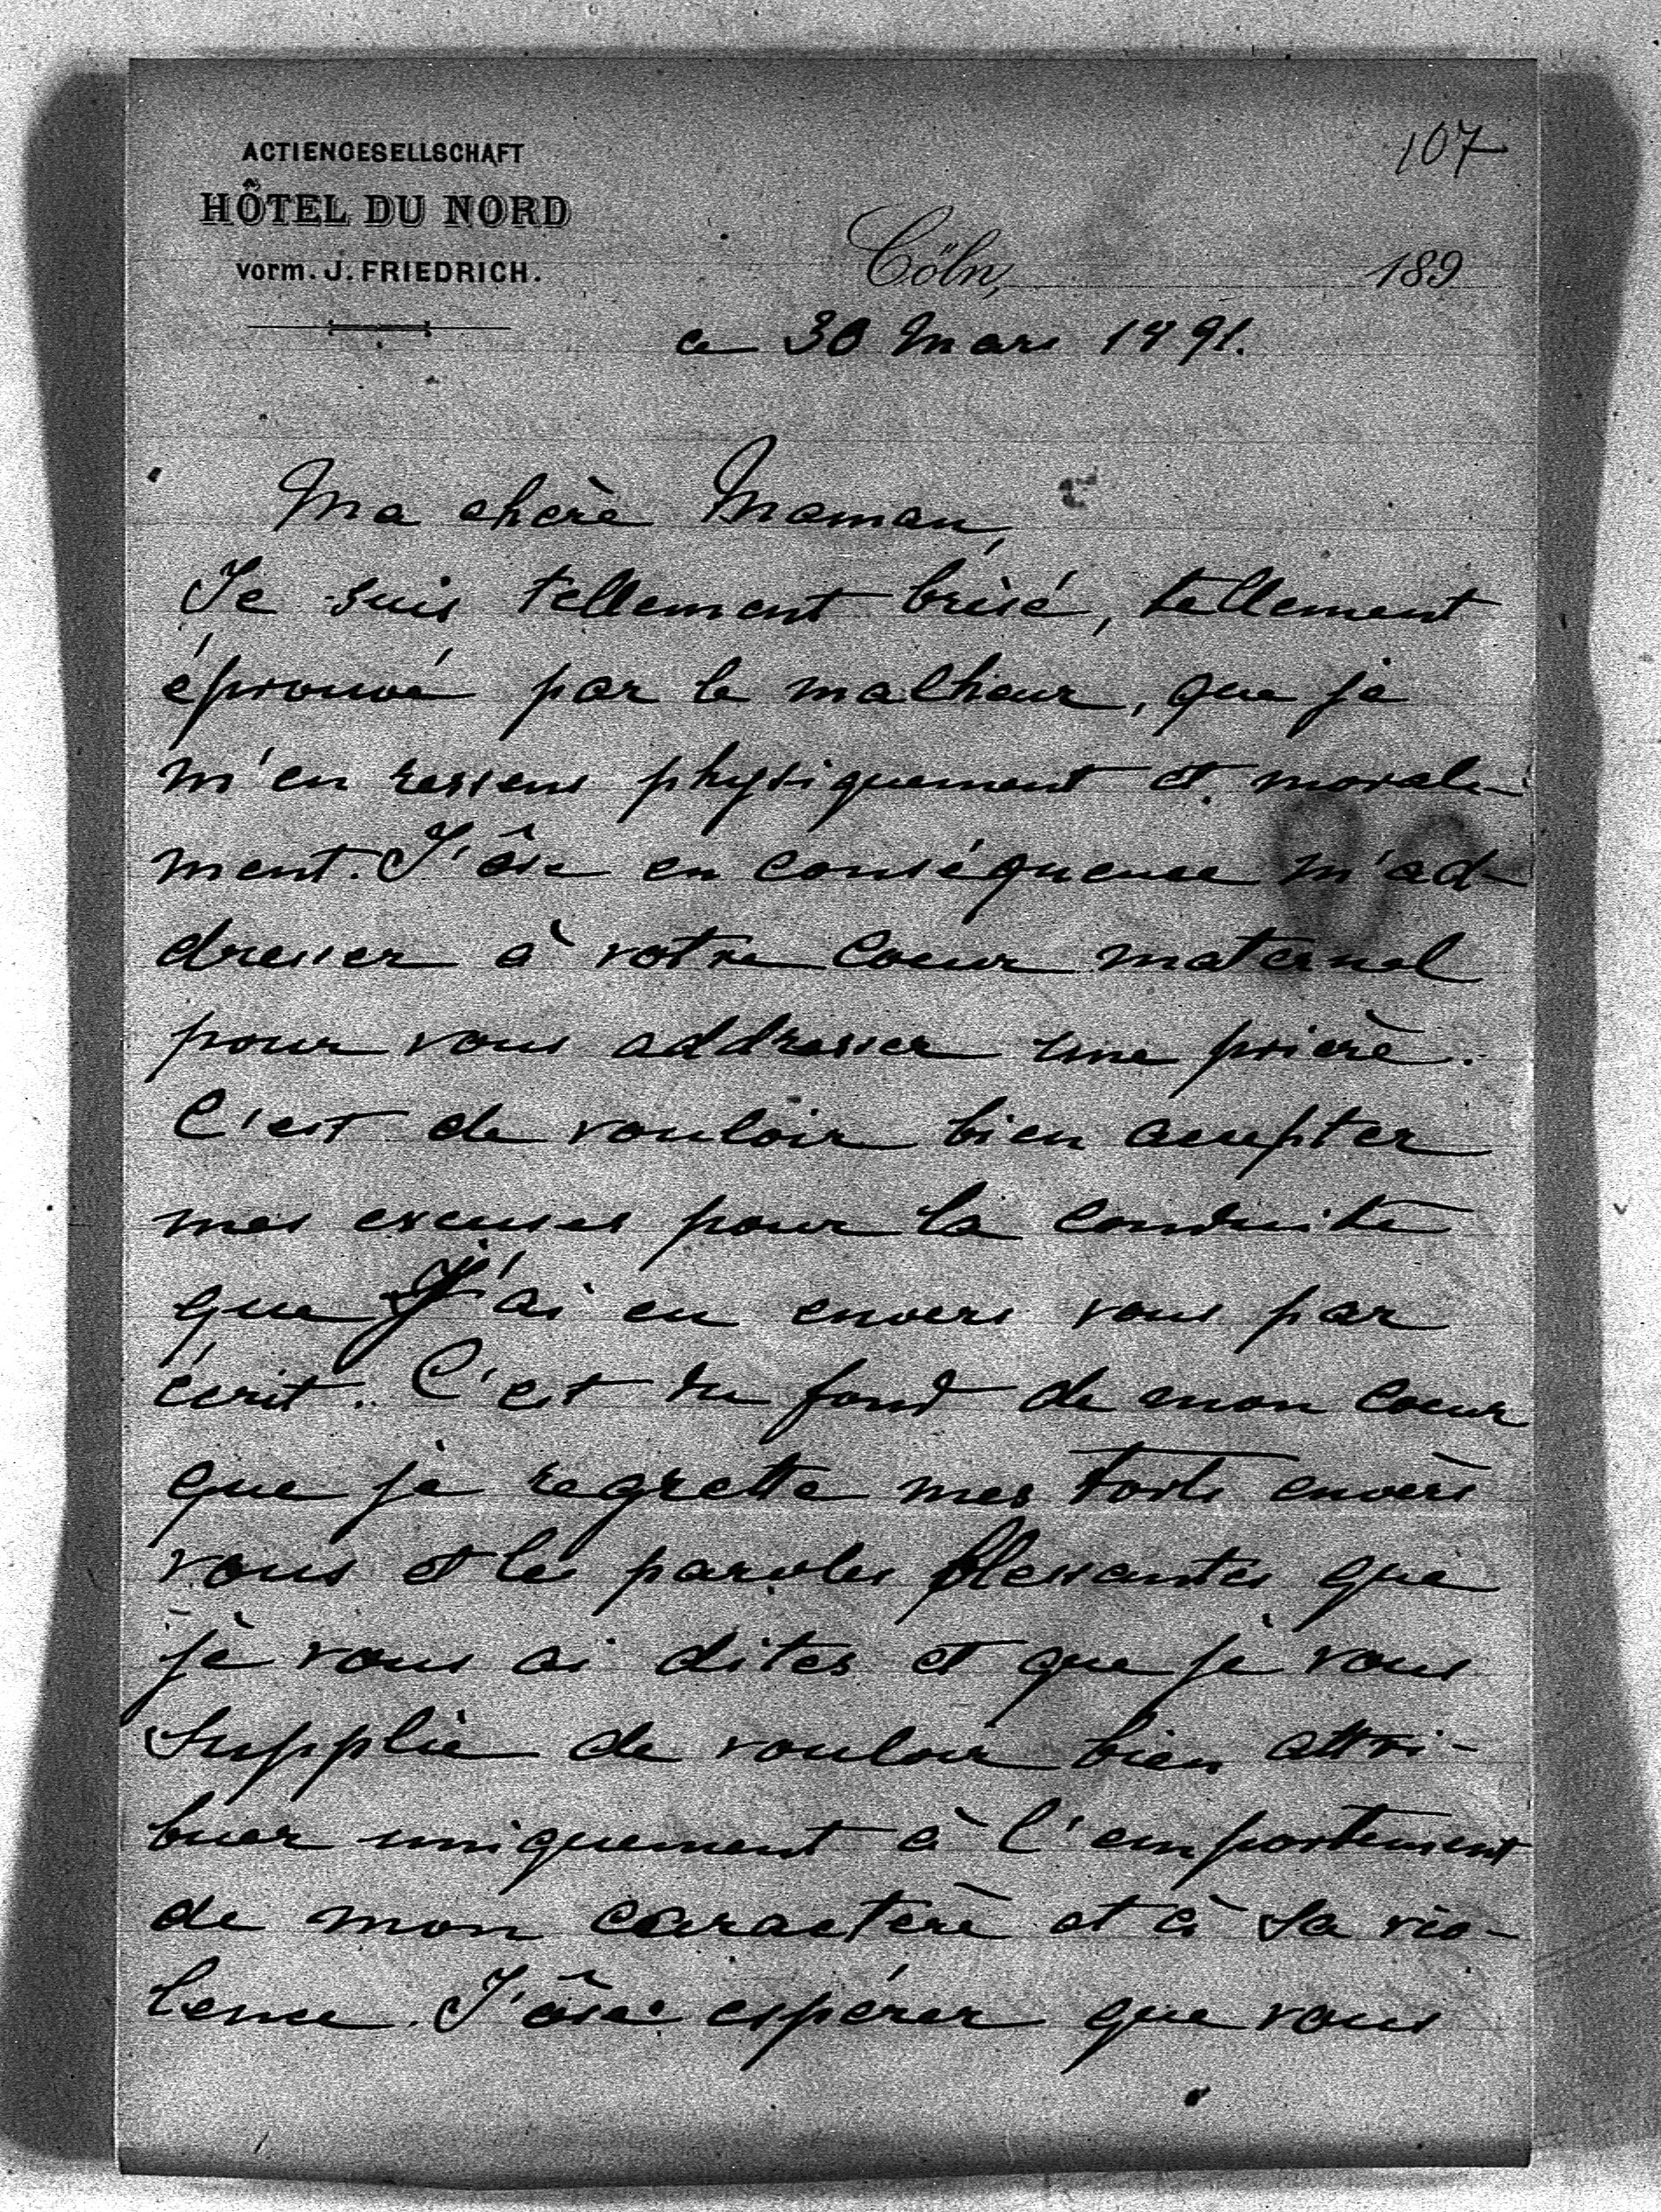 107
ACTIENGESELLSCHAFT
HÔTEL DU NORD
vorm. J. FRIEDRICH.
Cöln, 189
ce 30 Mars 1891.
Ma chère Maman,
Je suis tellement brisé, tellement
éprouvé par le malheur, que je
m'en ressens physiquement et morale-
ment. J'ôse en conséquence m'ad-
dresser à votre coeur maternel
pour vous addresser une prière.
C'est de vouloir bien accepter
mes excuses pour la conduite
que j'ai eu envers vous par
écrit. C'est du fond de mon coeur
que je regrette mes torts envers
vous et les paroles blessantes que
je vous ai dites et que je vous
supplie de vouloir bien attri-
buer uniquement à l'emportement
de mon caractère et à sa vio-
lence. J'ôse espérer que vous